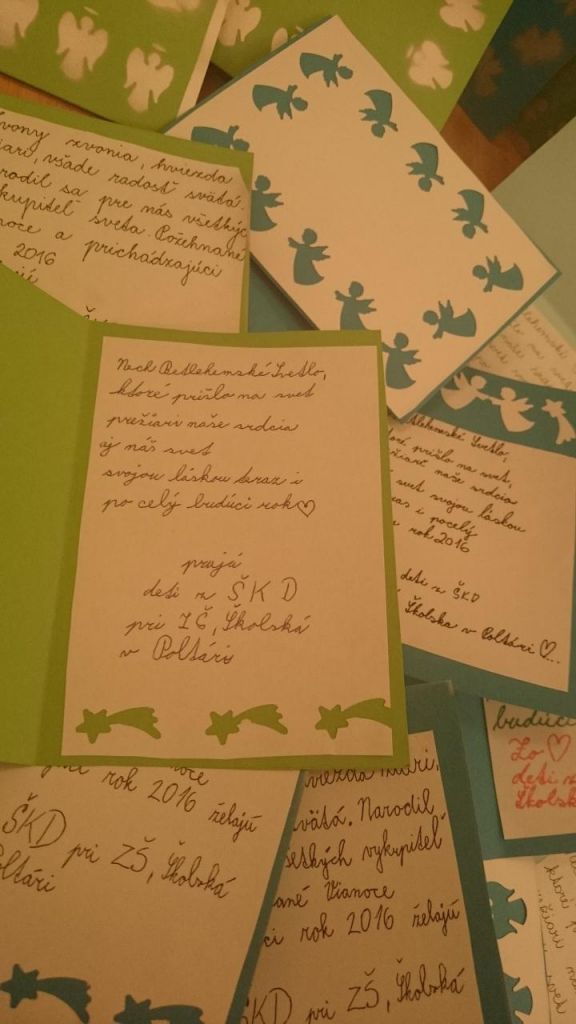 zvony zvonia, hviezda
žiari, všade radosť svätá.
Narodil sa pre nás všetkých
vykupiteľ sveta. Požehnané
Vianoce a prichádzajúci
2016
Nech Betlehemské Svetlo,
ktoré prišlo na svet
prežiari naše srdcia
aj náš svet
svojou láskou teraz i
po celý budúci rok♡
prajú
deti z ŠKD
pri ZŠ, Školská
v Poltári
Betlehemské Svetlo,
ktoré prišlo na svet,
prežiari naše srdcia
svet svojou láskou
i pocelý
rok 2016
deti zo ŠKD
Školska v Poltári ♡...
budúci
Zo ♡
deti z
Školsk
rok 2016 želajú
ŠKD pri ZŠ, Školská
Poltári
hviezda žiari,
svätá. Narodil
všetkých vykupiteľ
Vianoce
rok 2016 želajú
ŠKD pri ZŠ, Školská